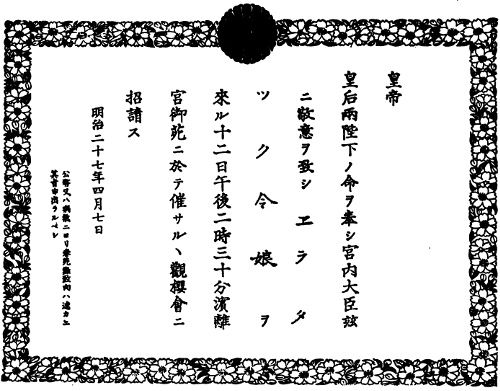 皇帝
皇后兩陛下ノ命ヲ奉シ宮内大臣玆
ニ敬意ヲ致シエラタ
ツク令娘ヲ
來ル十二日午後二時三十分濱離
宮御苑ニ於テ催サルヽ觀櫻會ニ
招請ス
明治二十七年四月七日
公務又ハ病氣ニヨリ參苑無致向ハ速カニ
其旨申出ラルベシ